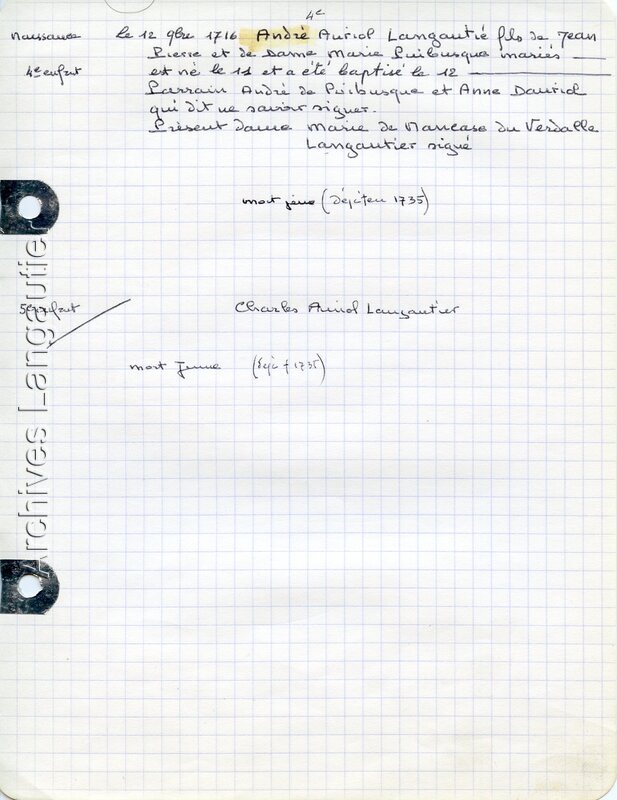 4e
Naissance le 12 9bre 1716 André Auriol Langautié fils de Jean
Pierre et de Dame Marie Puibusque mariés
4e enfant est né le 11 et a été baptisé le 12
Parrain André de Puibusque et Anne Dauriol
qui dit ne savoir signer.
Présent dame Marie de Nancase du Verdalle
Langautier signé
mort jeune (Déjà † en 1735)
5e enfant Charles Auriol Langautier
mort Jeune (déjà † 1735)
Archives Langautier